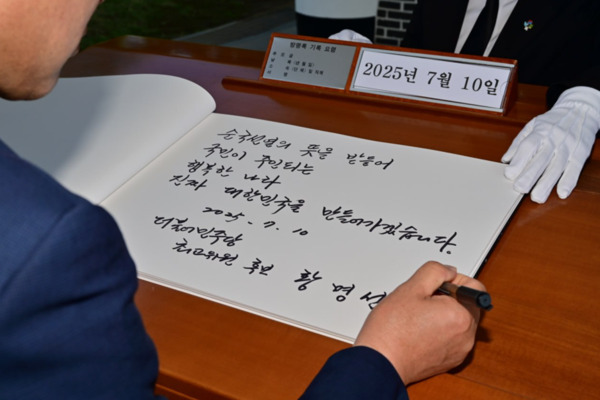 방명록 기록 요령
2025년 7월 10일
순국선열의 뜻을 받들어
국민이 주인되는
행복한 나라
진짜 대한민국을 만들어가겠습니다.
2025. 7. 10
더불어민주당
최고위원 후보 황명선